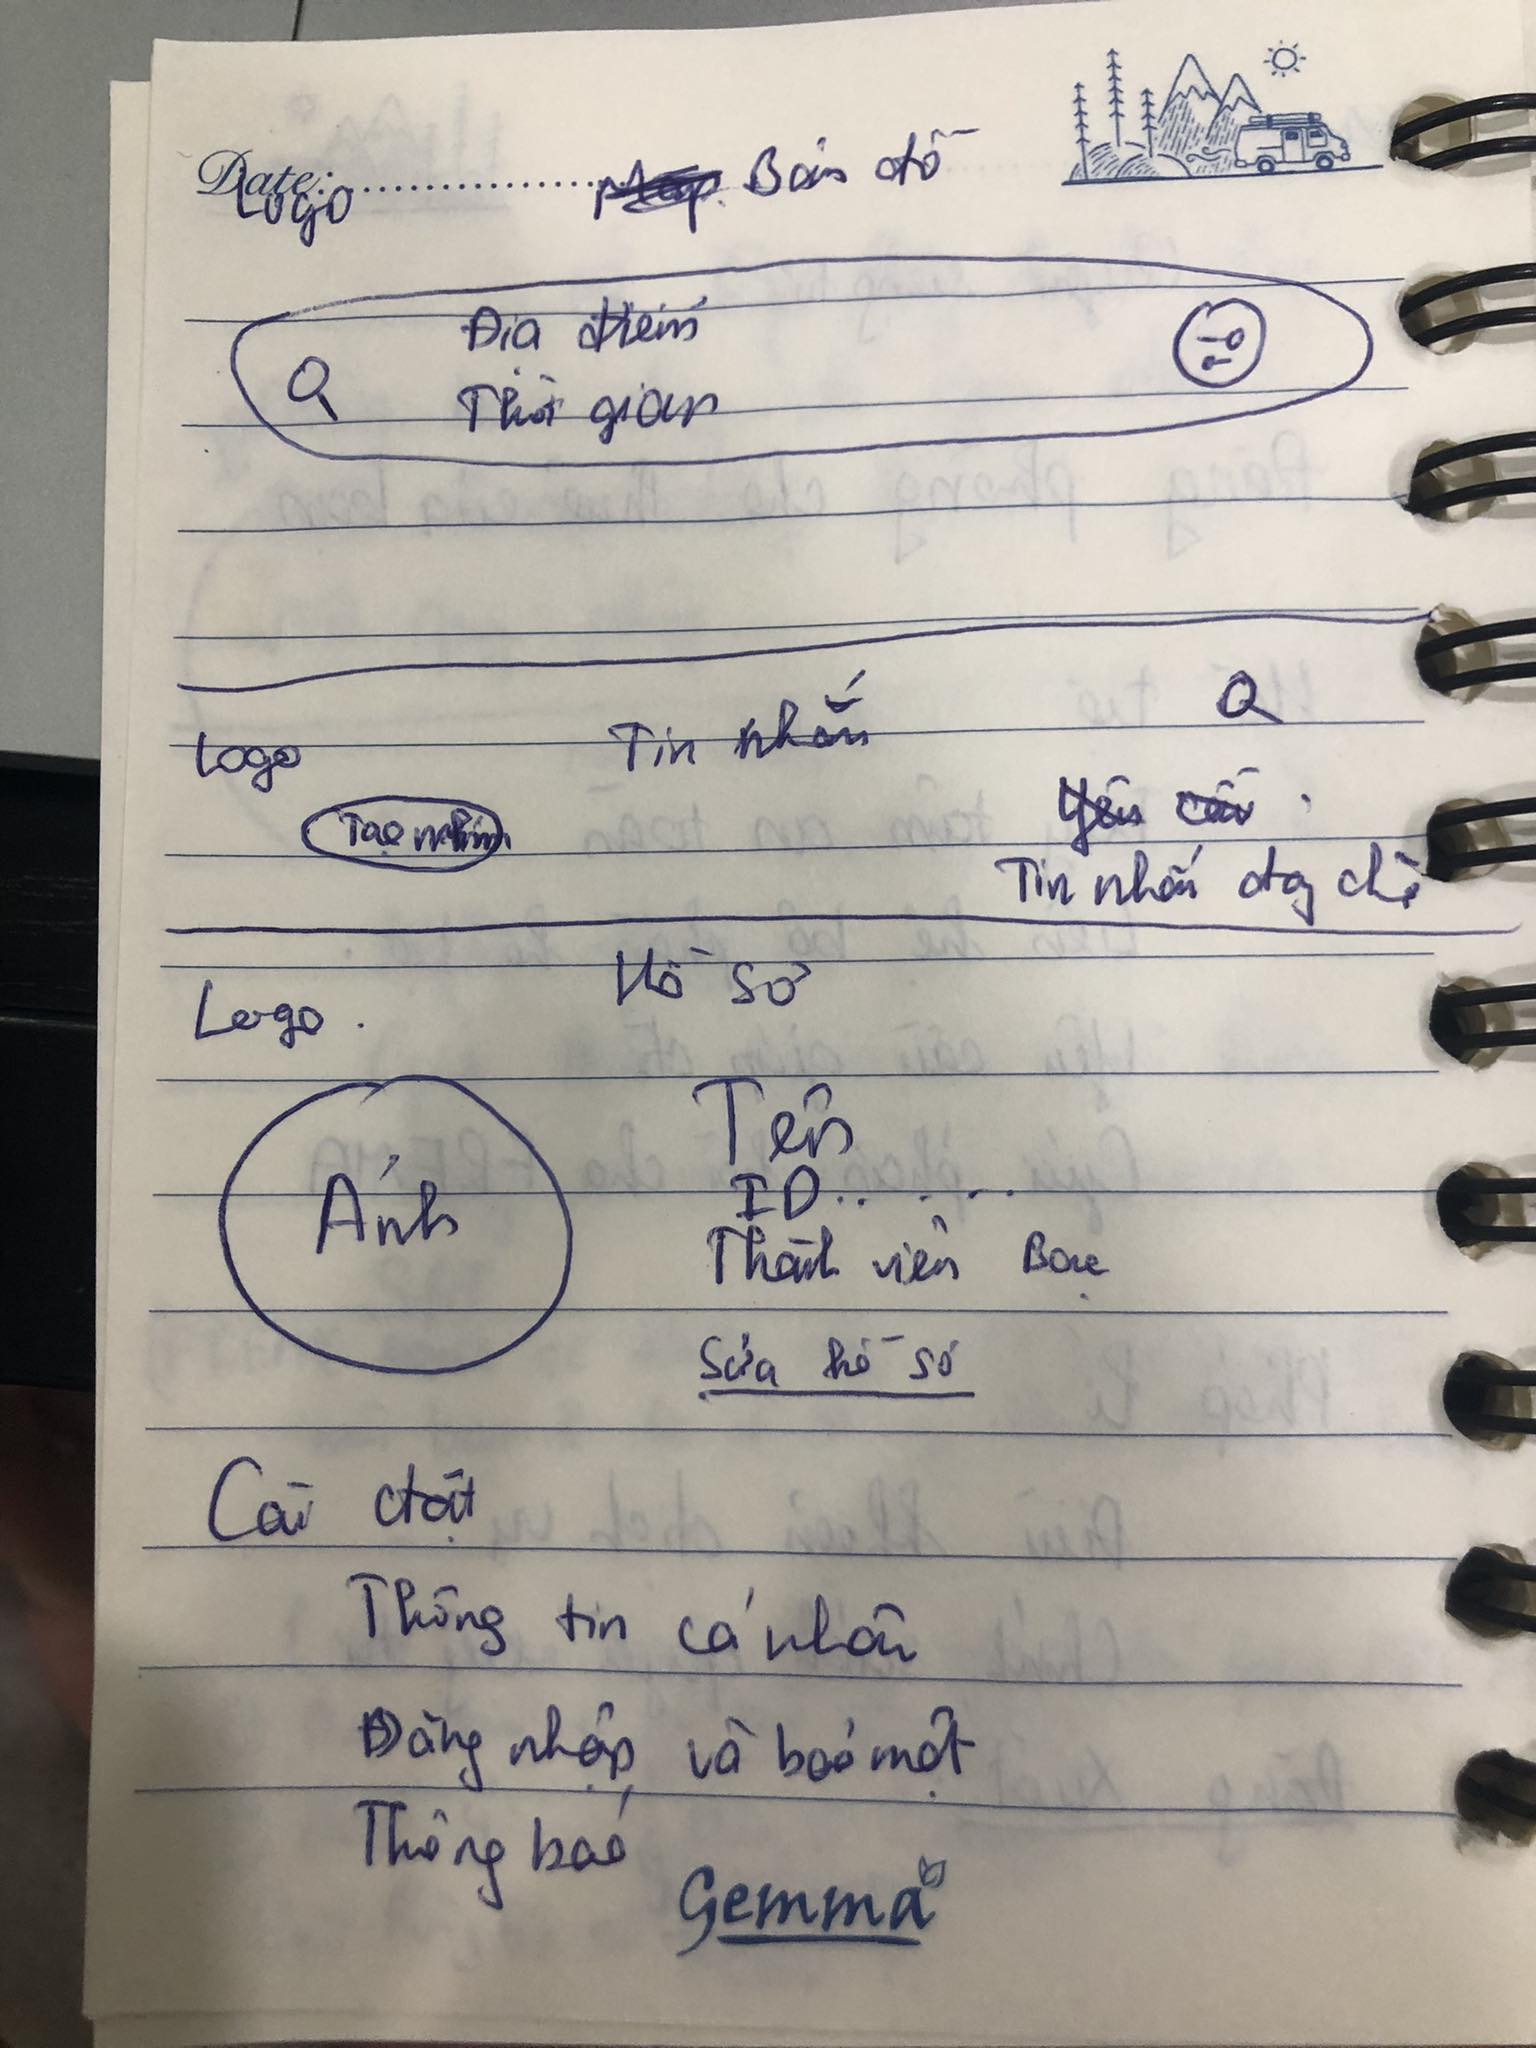 Date:
LOGO Bản đồ
Địa điểm
Thời gian
Logo Tin nhắn
Tạo nhóm
Tin nhắn đang chờ
Logo. Hồ sơ
Ảnh
Tên
ID.. . ...
Thành viên Bạc
Sửa hồ sơ
Cài đặt
Thông tin cá nhân
Đăng nhập và bảo mật
Thông báo
Gemma